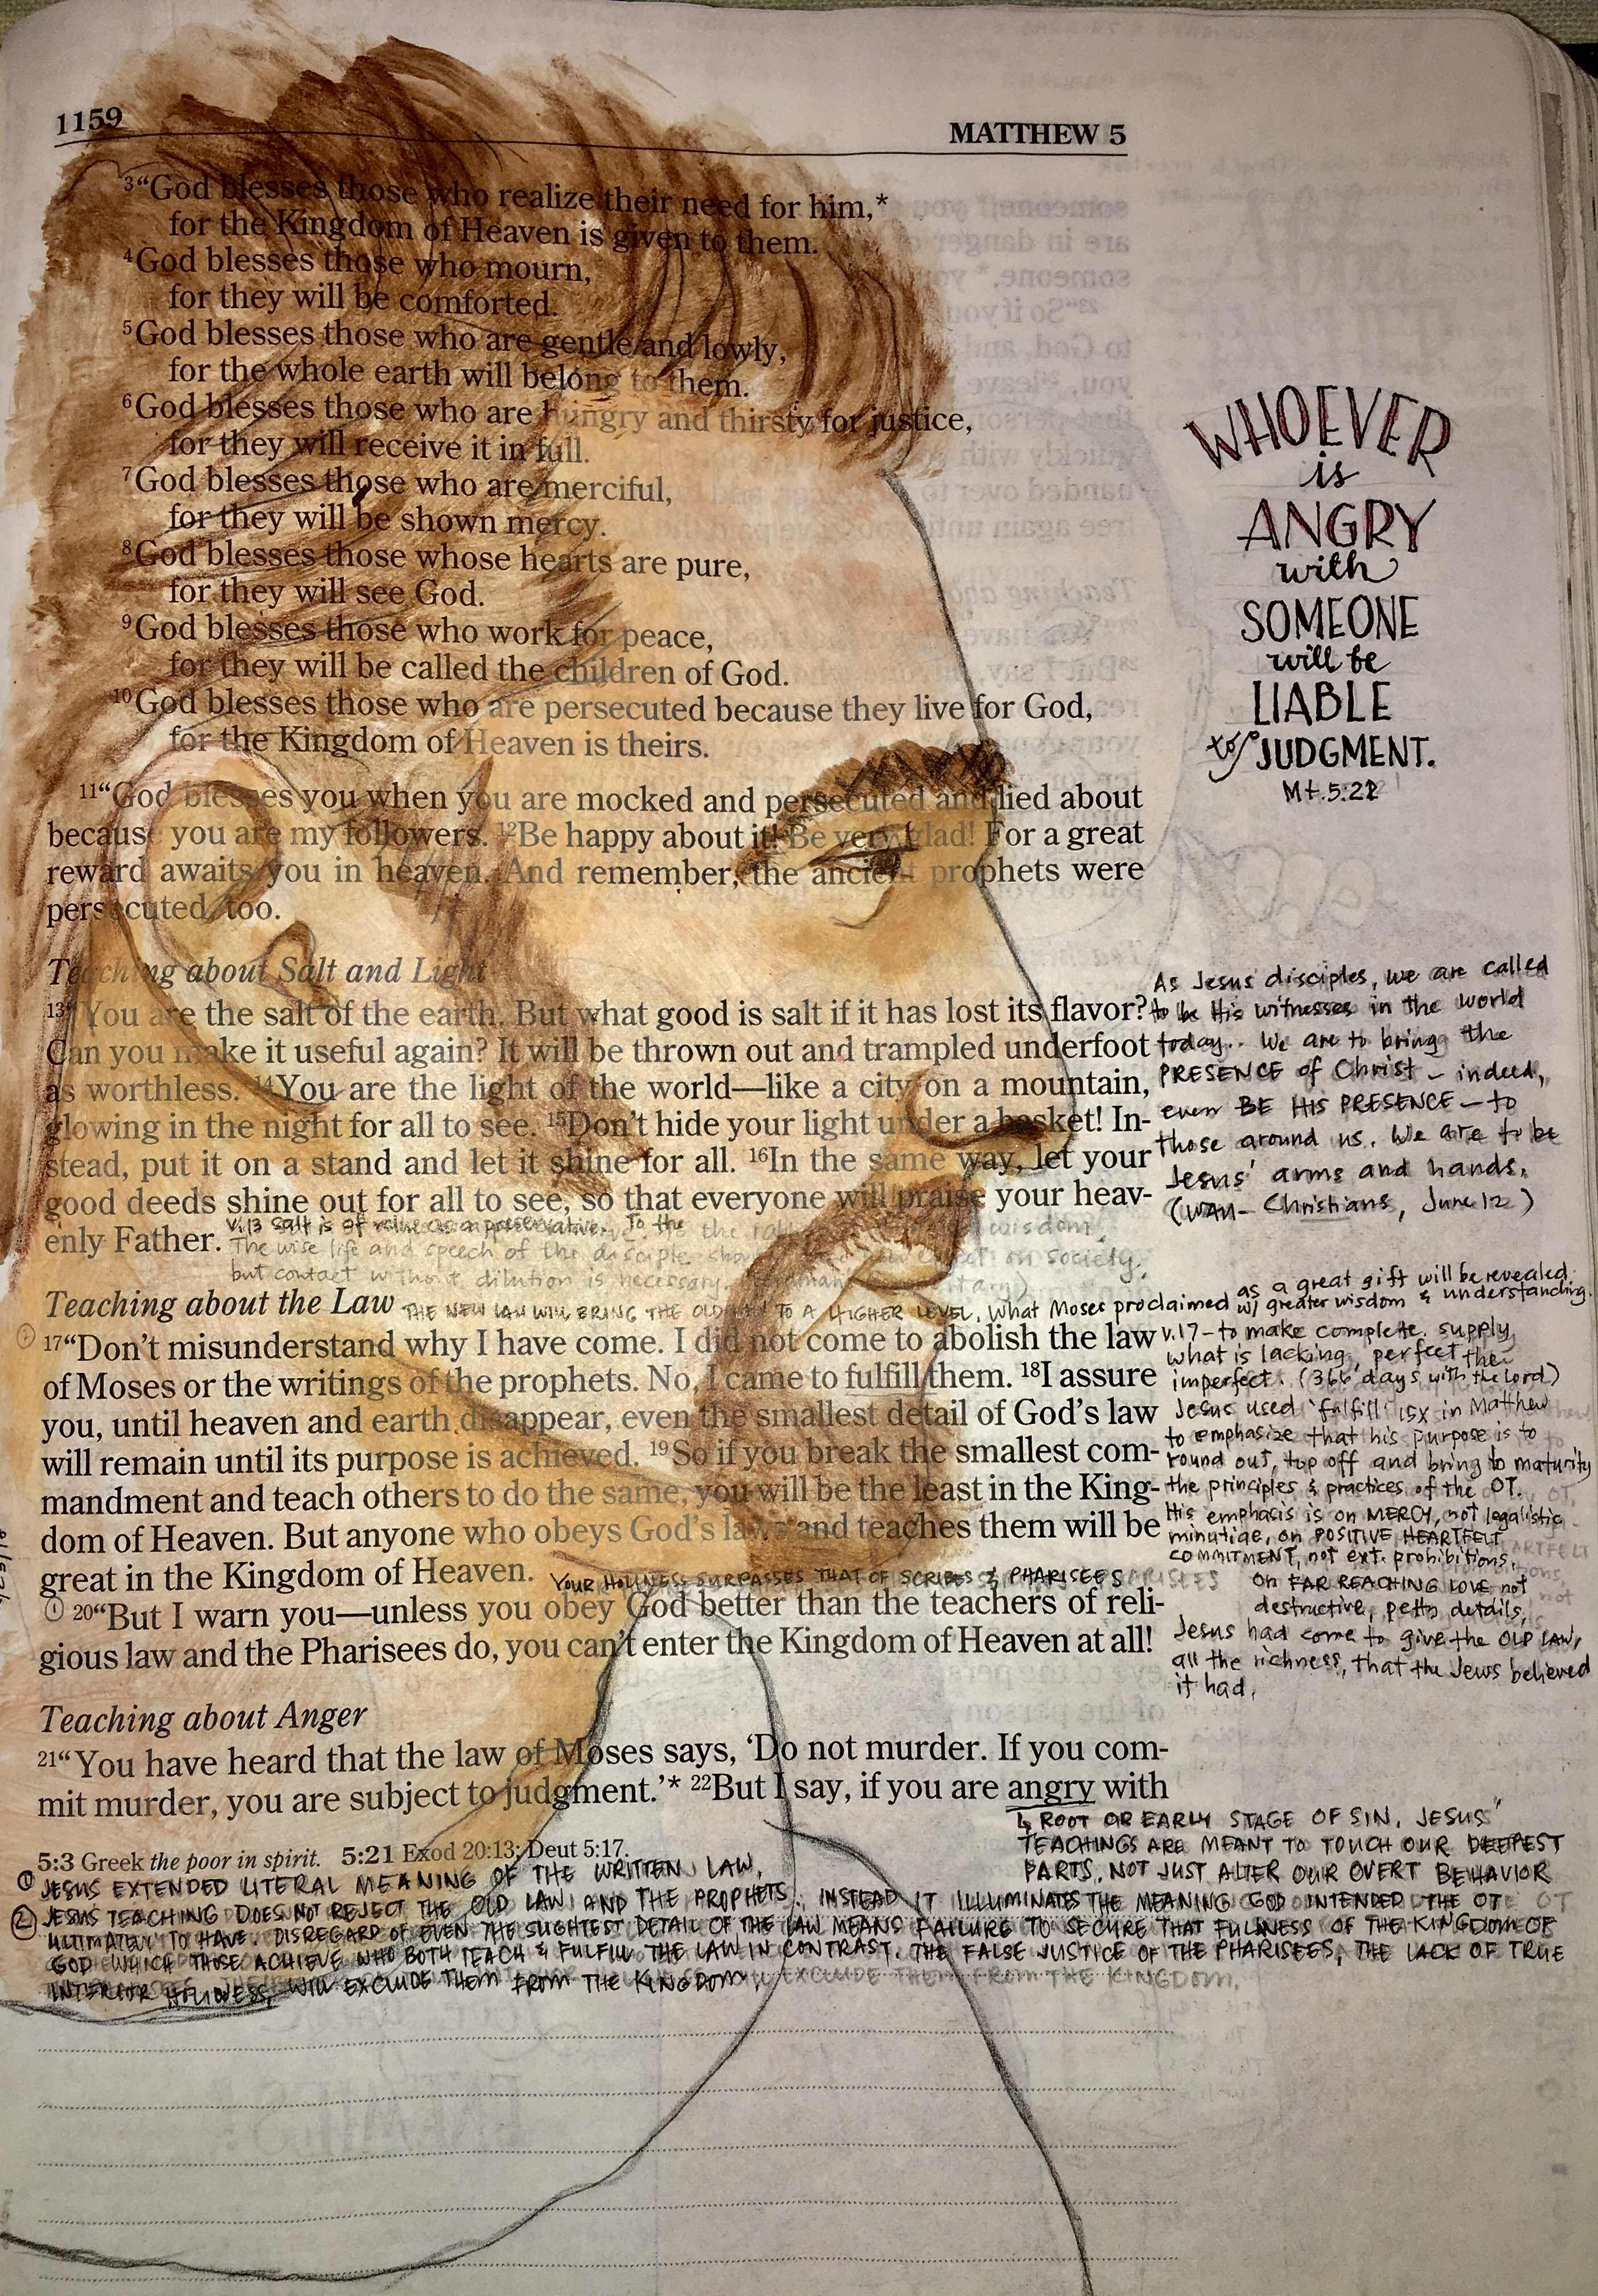 1159
MATTHEW 5
³“God blesses those who realize their need for him,*
for the Kingdom of Heaven is given to them.
⁴God blesses those who mourn,
for they will be comforted.
⁵God blesses those who are gentle and lowly,
for the whole earth will belong to them.
⁶God blesses those who are hungry and thirsty for justice,
for they will receive it in full.
⁷God blesses those who are merciful,
for they will be shown mercy.
⁸God blesses those whose hearts are pure,
for they will see God.
⁹God blesses those who work for peace,
for they will be called the children of God.
¹⁰God blesses those who are persecuted because they live for God,
for the Kingdom of Heaven is theirs.
¹¹“God blesses you when you are mocked and persecuted and lied about
because you are my followers. ¹²Be happy about it! Be very glad! For a great
reward awaits you in heaven. And remember, the ancient prophets were
persecuted, too.
WHOEVER
is
ANGRY
with
SOMEONE
will be
LIABLE
to JUDGMENT.
Mt. 5:22
Teaching about Salt and Light
¹³“You are the salt of the earth. But what good is salt if it has lost its flavor?
Can you make it useful again? It will be thrown out and trampled underfoot
as worthless. ¹⁴You are the light of the world—like a city on a mountain,
glowing in the night for all to see. ¹⁵Don’t hide your light under a basket! In-
stead, put it on a stand and let it shine for all. ¹⁶In the same way, let your
good deeds shine out for all to see, so that everyone will praise your heav-
enly Father.
V.13 Salt is of value as a preservative. To the wisdom.
The wise life and speech of the disciple on society.
but contact without dilution is necessary.
As Jesus disciples, we are called
to be His witnesses in the world
today.. We are to bring the
PRESENCE of Christ – indeed,
even BE HIS PRESENCE – to
those around us. We are to be
Jesus' arms and hands.
(WAU– Christians, June 12)
Teaching about the Law
THE NEW LAW WILL BRING THE OLD LAW TO A HIGHER LEVEL. What Moses proclaimed
as a great gift will be revealed
w/ greater wisdom & understanding.
¹⁷“Don’t misunderstand why I have come. I did not come to abolish the law
of Moses or the writings of the prophets. No, I came to fulfill them. ¹⁸I assure
you, until heaven and earth disappear, even the smallest detail of God’s law
will remain until its purpose is achieved. ¹⁹So if you break the smallest com-
mandment and teach others to do the same, you will be the least in the King-
dom of Heaven. But anyone who obeys God’s laws and teaches them will be
great in the Kingdom of Heaven.
YOUR HOLINESS SURPASSES THAT OF SCRIBES & PHARISEES
① ²⁰“But I warn you—unless you obey God better than the teachers of reli-
gious law and the Pharisees do, you can’t enter the Kingdom of Heaven at all!
v.17 – to make complete. supply
what is lacking, perfect the
imperfect. (366 days with the Lord)
Jesus used 'fulfill' 15x in Matthew
to emphasize that his purpose is to
round out, top off and bring to maturity
the principles & practices of the OT.
His emphasis is on MERCY, not legalistic
minutiae, on POSITIVE HEARTFELT
COMMITMENT, not ext. prohibitions,
on FAR REACHING LOVE not
destructive, petty details,
Jesus had come to give the OLD LAW,
all the richness, that the Jews believed
it had.
Teaching about Anger
²¹“You have heard that the law of Moses says, ‘Do not murder. If you com-
mit murder, you are subject to judgment.’* ²²But I say, if you are angry with
↳ ROOT OR EARLY STAGE OF SIN. JESUS'
TEACHINGS ARE MEANT TO TOUCH OUR DEEPEST
PARTS, NOT JUST ALTER OUR OVERT BEHAVIOR
5:3 Greek the poor in spirit. 5:21 Exod 20:13; Deut 5:17.
① JESUS EXTENDED LITERAL MEANING OF THE WRITTEN LAW.
② JESUS TEACHING DOES NOT REJECT THE OLD LAW AND THE PROPHETS. INSTEAD IT ILLUMINATES THE MEANING GOD INTENDED THE OT
ULTIMATELY TO HAVE. DISREGARD OF EVEN THE SLIGHTEST DETAIL OF THE LAW MEANS FAILURE TO SECURE THAT FULLNESS OF THE KINGDOM OF
GOD WHICH THOSE ACHIEVE WHO BOTH TEACH & FULFILL THE LAW. IN CONTRAST, THE FALSE JUSTICE OF THE PHARISEES, THE LACK OF TRUE
INTERIOR HOLINESS, WILL EXCLUDE THEM FROM THE KINGDOM.